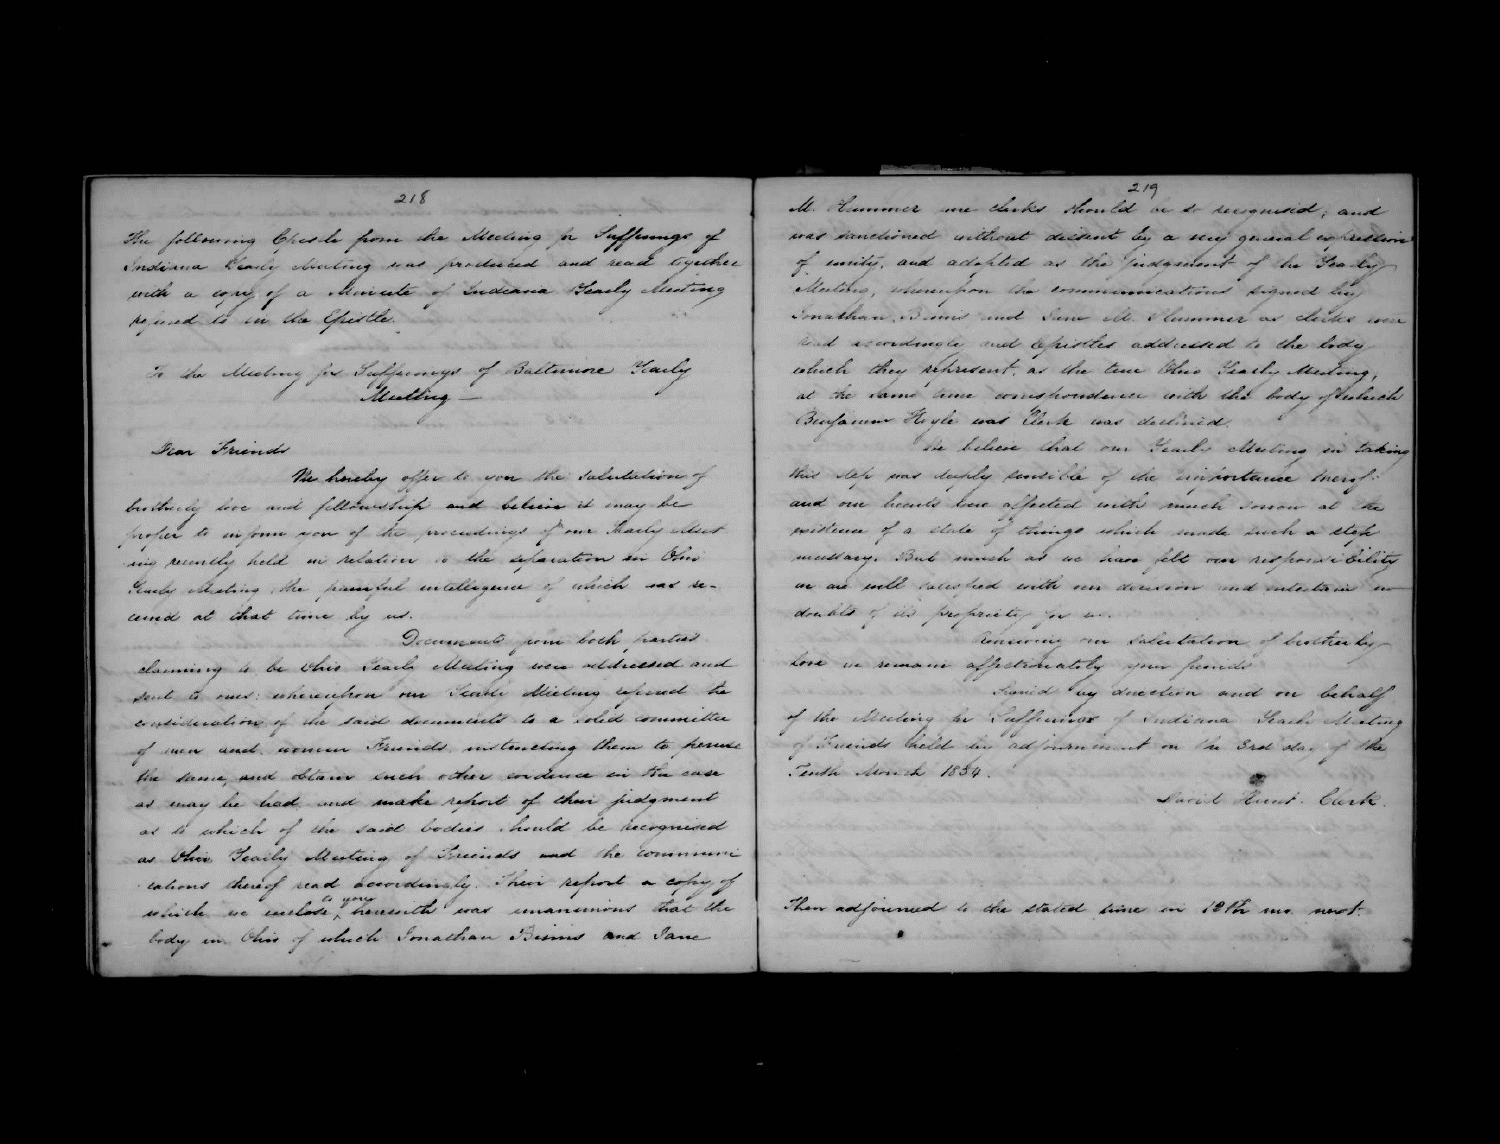 218
The following Epistle from the Meeting for Sufferings of
Indiana Yearly Meeting was produced and read together
with a copy of a Minute of Indiana Yearly Meeting
refered to in the Epistle.
To the Meeting for Sufferings of Baltimore Yearly
Meeting —
Dear Friends
We hereby offer to you the salutation of
brotherly love and fellowship and believe it may be
proper to inform you of the proceedings of our Yearly Meet
ing recently held in relation to the separation in Ohio
Yearly Meeting, the painful intelligence of which was re-
ceived at that time by us.
Documents from both parties
claiming to be Ohio Yearly Meeting were addressed and
sent to ours: whereupon our Yearly Meeting refered the
consideration of the said documents to a solid committee
of men and women Friends, instructing them to peruse
the same, and obtain such other evidence in the case
as may be had, and make report of their judgment
as to which of the said bodies should be recognised
as Ohio Yearly Meeting of Friends and the communi
cations thereof read accordingly. Their report a copy of
which we enclose to you herewith was unanimous that the
body in Ohio of which Jonathan Binns and Jane
219
M. Plummer are clerks should be so recognised; and
was sanctioned without dissent by a very general expression
of unity, and adopted as the judgment of the Yearly
Meeting, whereupon the communications signed by
Jonathan Binns and Jane M. Plummer as clerks were
read accordingly and Epistles addressed to the body
which they represent, as the true Ohio Yearly Meeting,
at the same time correspondence with the body of which
Benjamin Hoyle was Clerk was declined.
We believe that our Yearly Meeting in taking
this step was deeply sensible of the importance thereof:
and our hearts were affected with much sorrow at the
existence of a state of things which made such a step
necessary. But much as we have felt our responsibility
we are well satisfied with our decision and entertain no
doubts of its propriety for us.
Renewing our salutation of brotherly
love we remain affectionately your friends
Signed by direction and on behalf
of the Meeting for Sufferings of Indiana Yearly Meeting
of Friends held by adjournment on the 3rd day of the
Tenth Month 1854.
David Hunt. Clerk.
Then adjourned to the stated time in 12th mo. next.